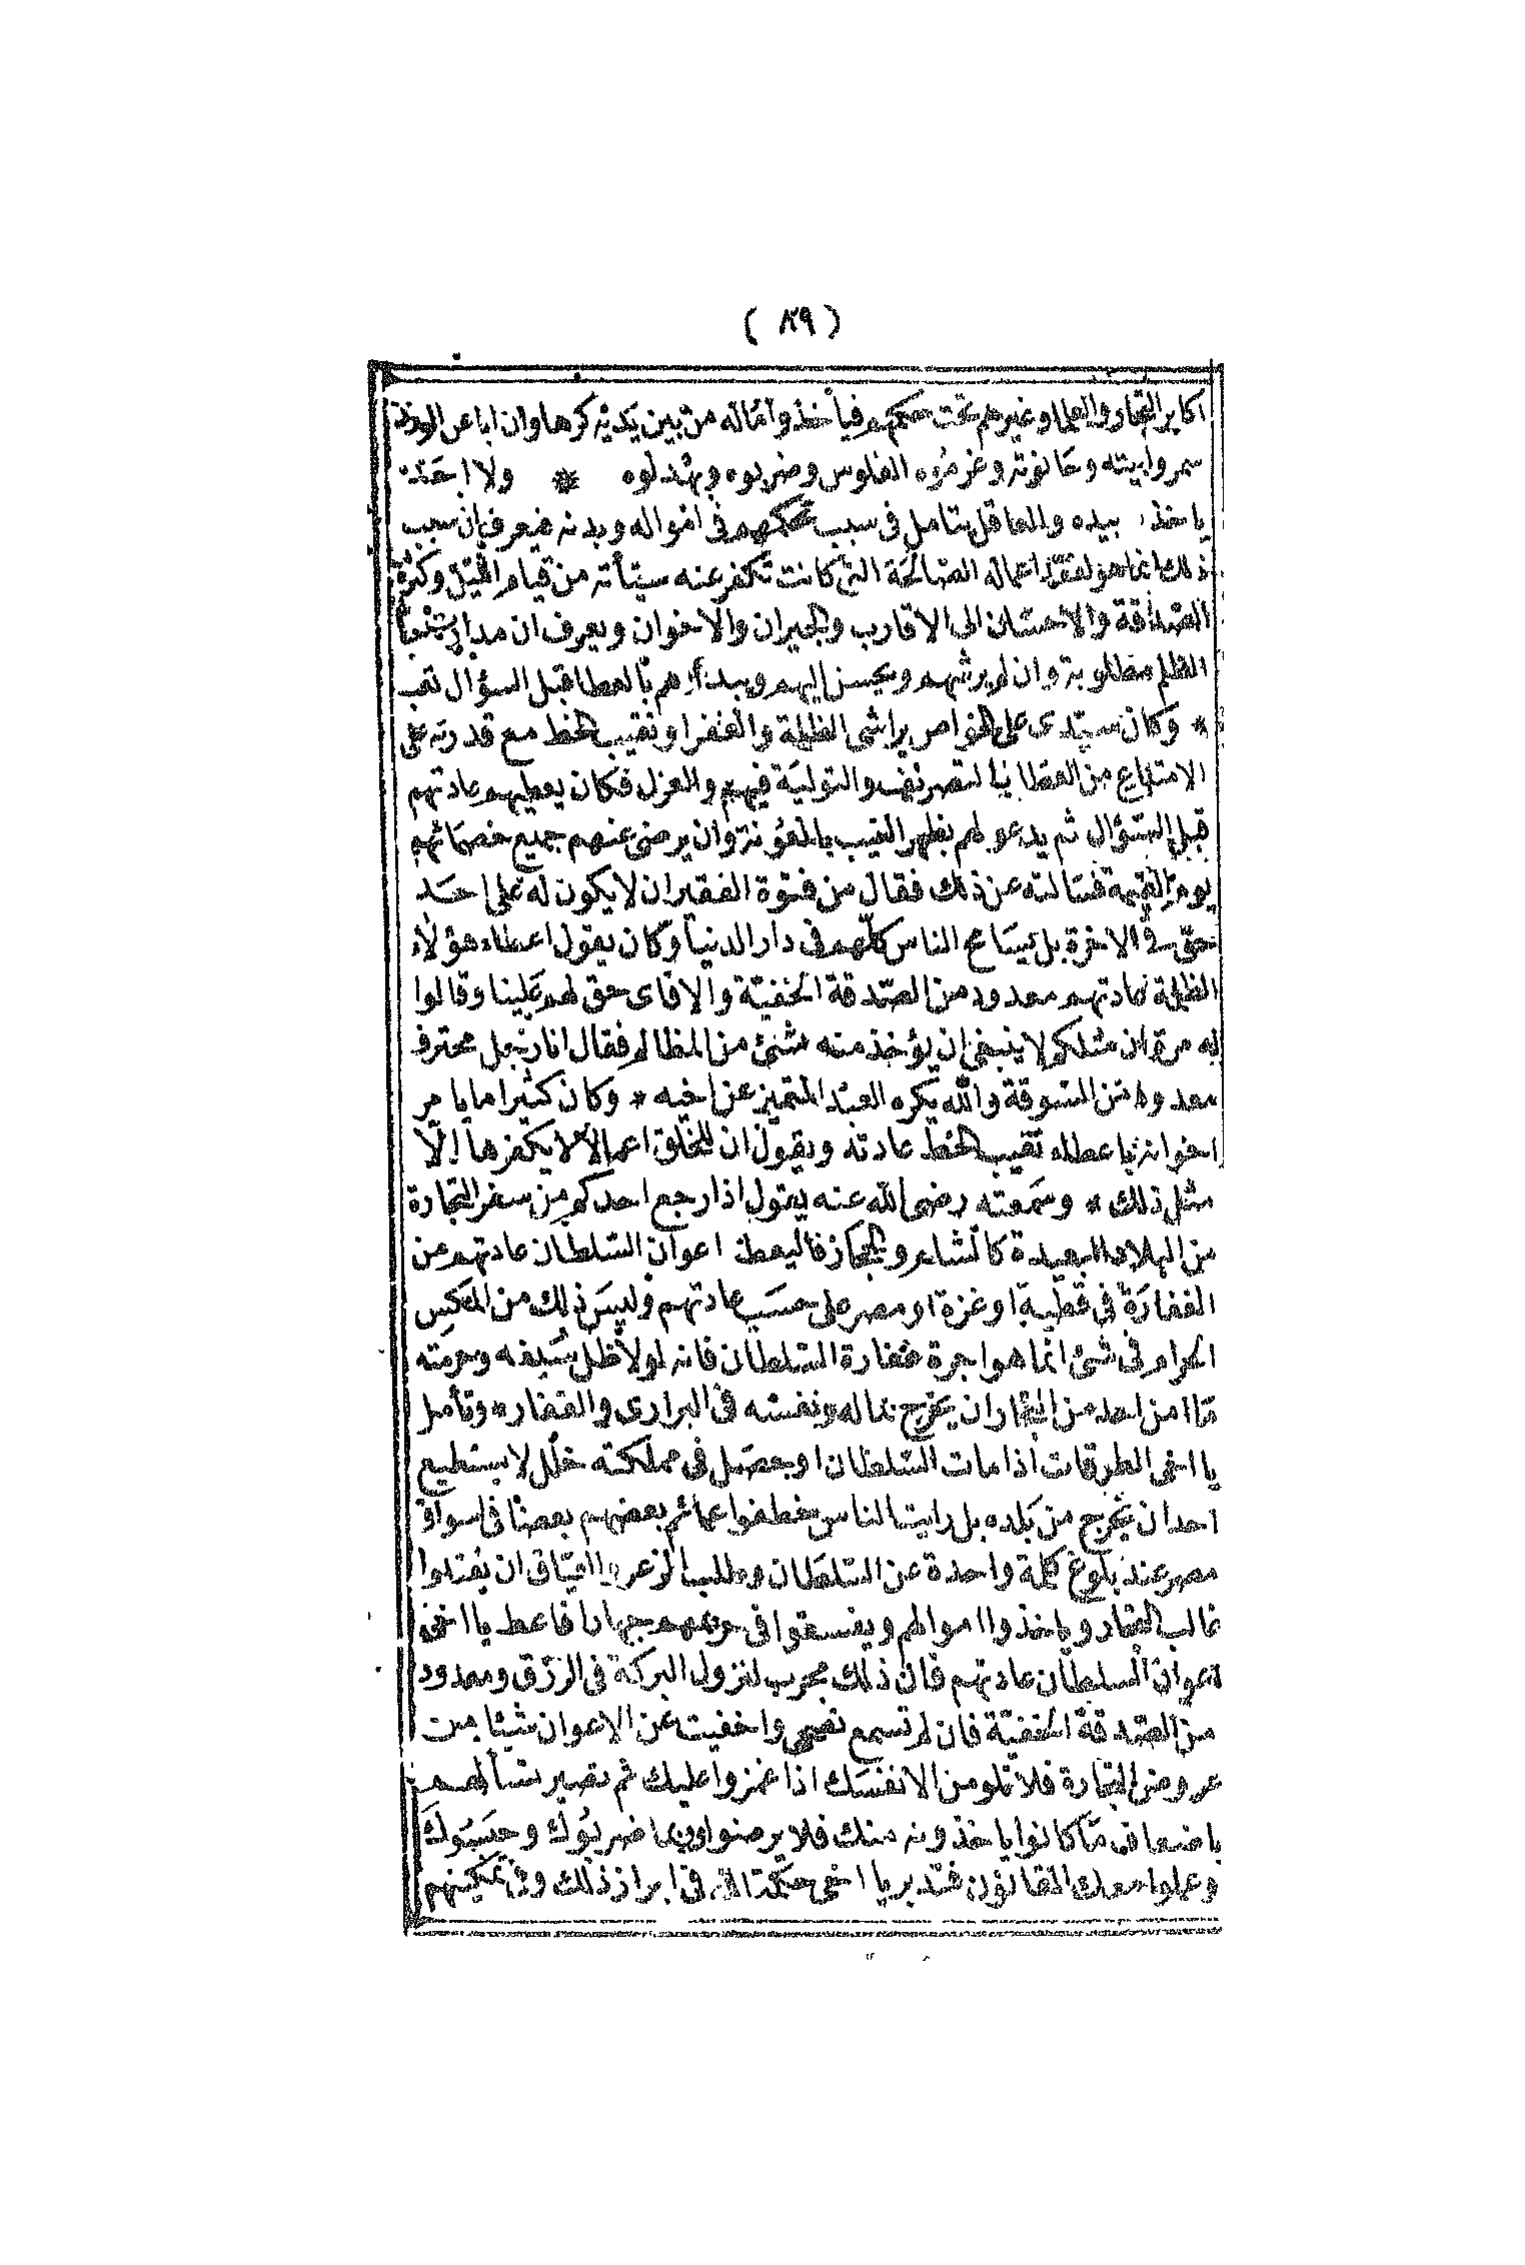 ( ٨٩ )
اكابر التجار والعلما وغيرهم تحت حكمهم فيأخذوا ماله من بين يديه كرها وان ابا عن الوزن
سمروا بيته وحانوته وغرموه الفلوس وضربوه وبهدلوه * ولا احد
ياخذ بيده والعاقل يتامل في سبب تحكمهم في امواله وبدنه فيعرف ان سبب
ذلك انما هو لفقد اعماله الصالحة التي كانت تكفر عنه سيئاته من قيام الليل وكثرة
الصدقة والاحسان الى الاقارب والجيران والاخوان ويعرف ان مداراة
الظلم مطلوبة وان لم يرشهم ويحسن اليهم ويبدأهم بالعطا قبل السؤال تعب
* وكان سيدى على الخواص يراشى الظلمة والغفرا ونقيب الخط مع قدرته على
الامتناع من العطا بالتصريف والتولية فيهم والعزل فكان يعطيهم عادتهم
قبل السؤال ثم يدعو لهم بظهر الغيب بالمعونة وان يرضى عنهم جميع خصمائهم
يوم القيمة فسالته عن ذلك فقال من فتوة الفقير ان لا يكون له على احد
حق في الاخرة بل يسامح الناس كلهم في دار الدنيا وكان يقول اعطاء هؤلاء
الظلمة عادتهم معدود من الصدقة الخفية والا فاى حق لهم علينا وقالوا
له مرة ان مثلكم لا ينبغى ان يؤخذ منه شئ من المظالم فقال انا رجل محترف
معدود من السوقة والله يكره العبد المتميز عن اخيه * وكان كثيرا ما يامر
اخوانه باعطاء نقيب الخط عادته ويقول ان للخلق اعمالا لا يكفرها الّا
مثل ذلك * وسمعته رضى الله عنه يقول اذا رجع احدكم من سفر التجارة
من البلاد البعيدة كالشام والحجاز فاليعط اعوان السلطان عادتهم من
الغفارة في قطية او غزة او مصر على حسب عادتهم وليس ذلك من المكس
الحرام في شئ انما هو اجرة خفارة السلطان فانه لولا ظل سيفه وحرمته
ما امن احد من التجار ان يخرج بماله ونفسه في البرارى والقفار * وتأمل
يا اخى الطرقات اذا مات السلطان او حصل في مملكته خلل لا يستطيع
احد ان يخرج من بلده بل رايت الناس خطفوا عمائم بعضهم بعضا في اسواق
مصر عند بلوغ كلمة واحدة عن السلطان وطلب الزعر والعياق ان يقتلوا
غالب التجار وياخذوا اموالهم ويفسقوا في حريمهم جهارا فاعط يا اخى
اعوان السلطان عادتهم فان ذلك مجرب لنزول البركة في الرزق ومعدود
من الصدقة الخفية فان لم تسمع نصحى واخفيت عن الاعوان شيئا من
عروض التجارة فلا تلومن الا نفسك اذا غمزوا عليك ثم تصير تسألهم
باضعاف ما كانوا ياخذونه منك فلا يرضوا وربما ضربوك وحبسوك
وعملوا معك القانون فتدبر يا اخى حكمة الله في ابراز ذلك وفي تمكينهم